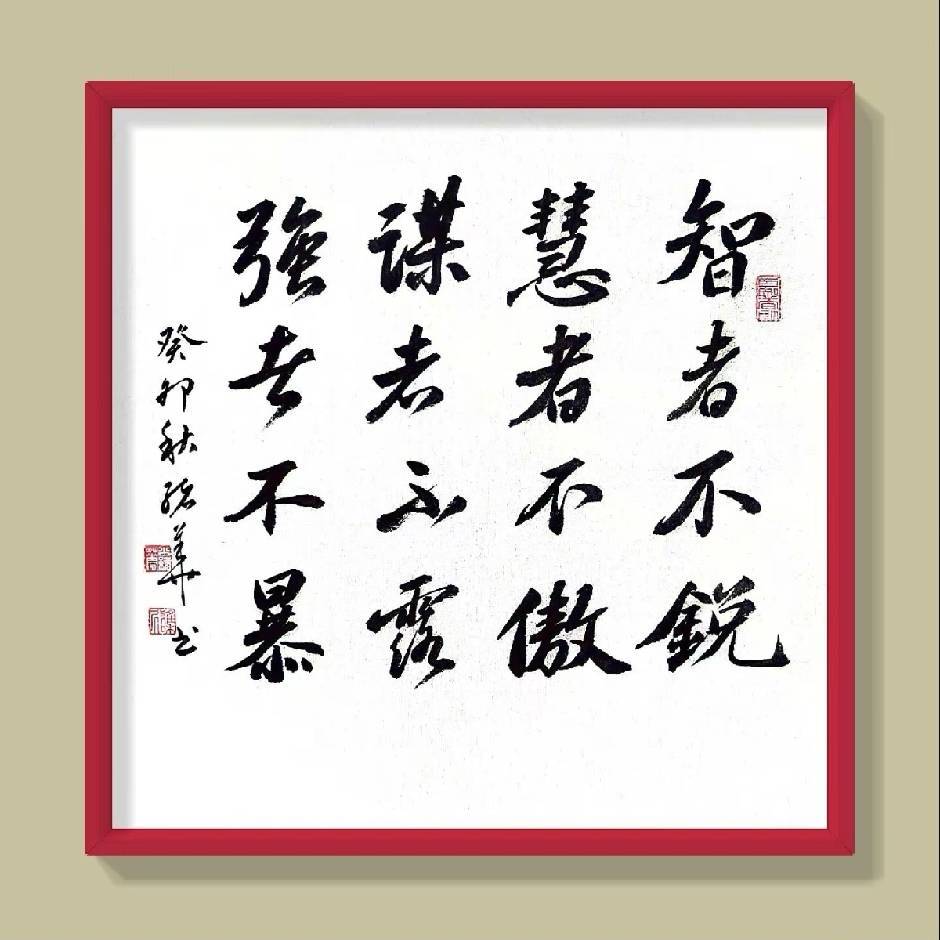 智者不銳
慧者不傲
謀者不露
強者不暴
癸卯秋 華书